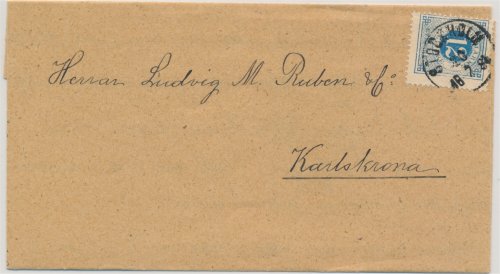 Herrar Ludvig M. Ruben & Co:
Karlskrona
STOCKHOLM
12